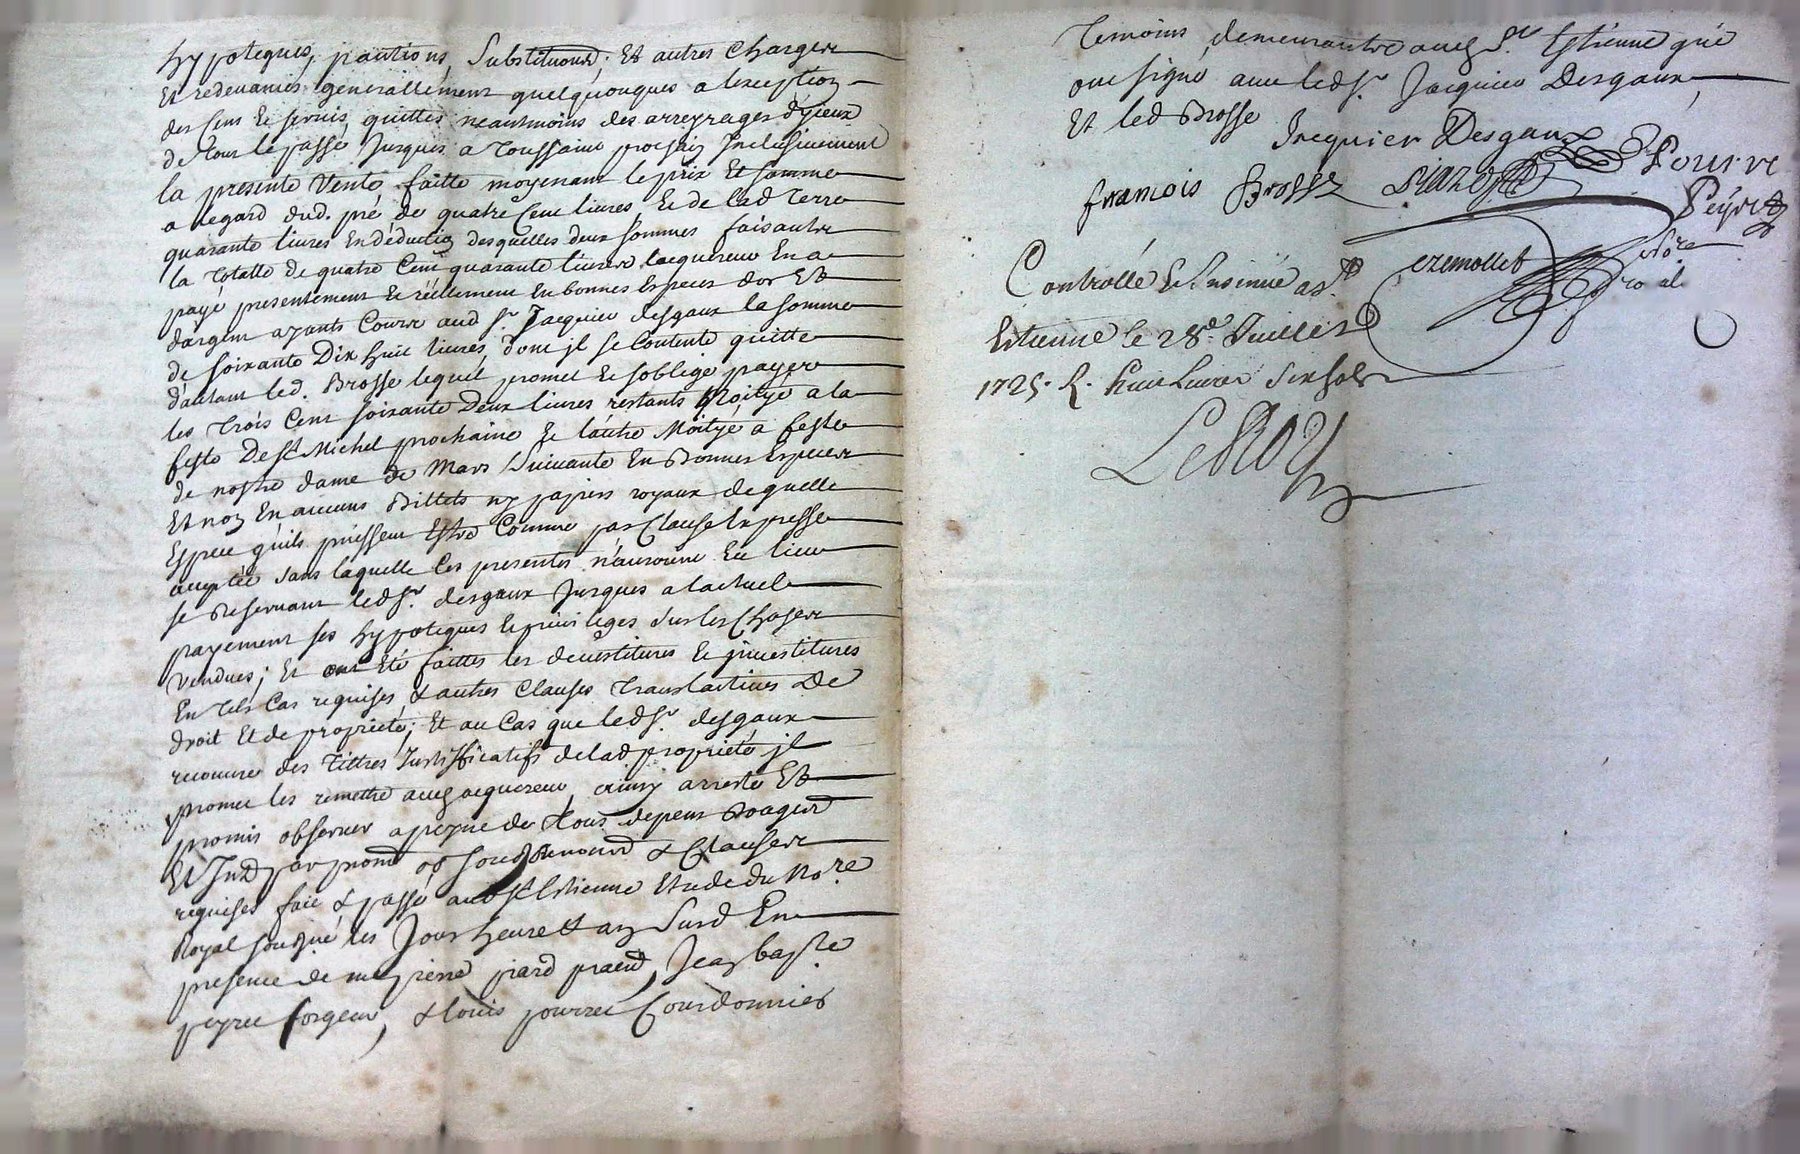 hypoteques, pantions, Substitutions. Et autres Charges
Et redevances generallement quelquonques a lexception
des Cens Et servis, quittes neantmoins des arreyrages dyceux
de tout le passé Jusques a Toussaint prochain Inclusivement
la presente Vente faitte moyenant le prix Et somme
a legard dud. pré de quatre Cent livres, Et de lad Terre
quarante livres En déduction desquelles deux sommes faisantes
la totalle de quatre Cent quarante livres lacquereur En a
payé presentement Et réellement En bonnes Especes dor Et
dargent ayants Cours aud Sr. Jacquier desgaux la somme
de soixante Dix huit livres, dont jl se Contente quitte
dautant led. Brosse lequel promet Et soblige payer
les Trois Cent soixante Deux livres restants Moityé a la
feste De St Michel prochaine Et lautre Moityé a feste
de nostre dame de Mars Suivante En Bonnes Especes
Et non En aucuns Billets ny papiers royaux de quelle
Espece quils puissent Estre Comme par Clause Expresse
acceptée sans laquelle les presentes n'auroient Eu lieu
se Reservant led Sr. desgaux Jusques a lactuel
payement ses hypoteques Et privileges Sur les Choses
Vendues; Et ont Eté faittes les devestitures Et jnvestitures
En tels Cas requises, & autres Clauses Translatives De
droit Et de proprieté; Et au Cas que led Sr desgaux
recouvre des Tittres Justifficatifs de lad proprieté jl
promet les remettre aud acquereur, ainsy arresté Et
promis observer a peyne de tous depens Domages
Et Jnts par promd & Clauses
requises fait & passé aud St Estienne Etude du Nore
Royal sousigné les Jour heure & an Susd En
presence de me pierre piard pratn, Jean bapte
peyret forgeur, & louis pourret Courdonnier
Temoins demeurantre aud St. Estienne qui
ont signé avec led Sr Jacquier Desgaux
Et led Brosse
Jacquier Desgaux
francois Brosse piard Pourret
Peyret
ezemollet nore
royal
Controllé Et Insinué a St
Estienne le 28e. Juillet
1725. R. huit Livres six sols
LeRoy